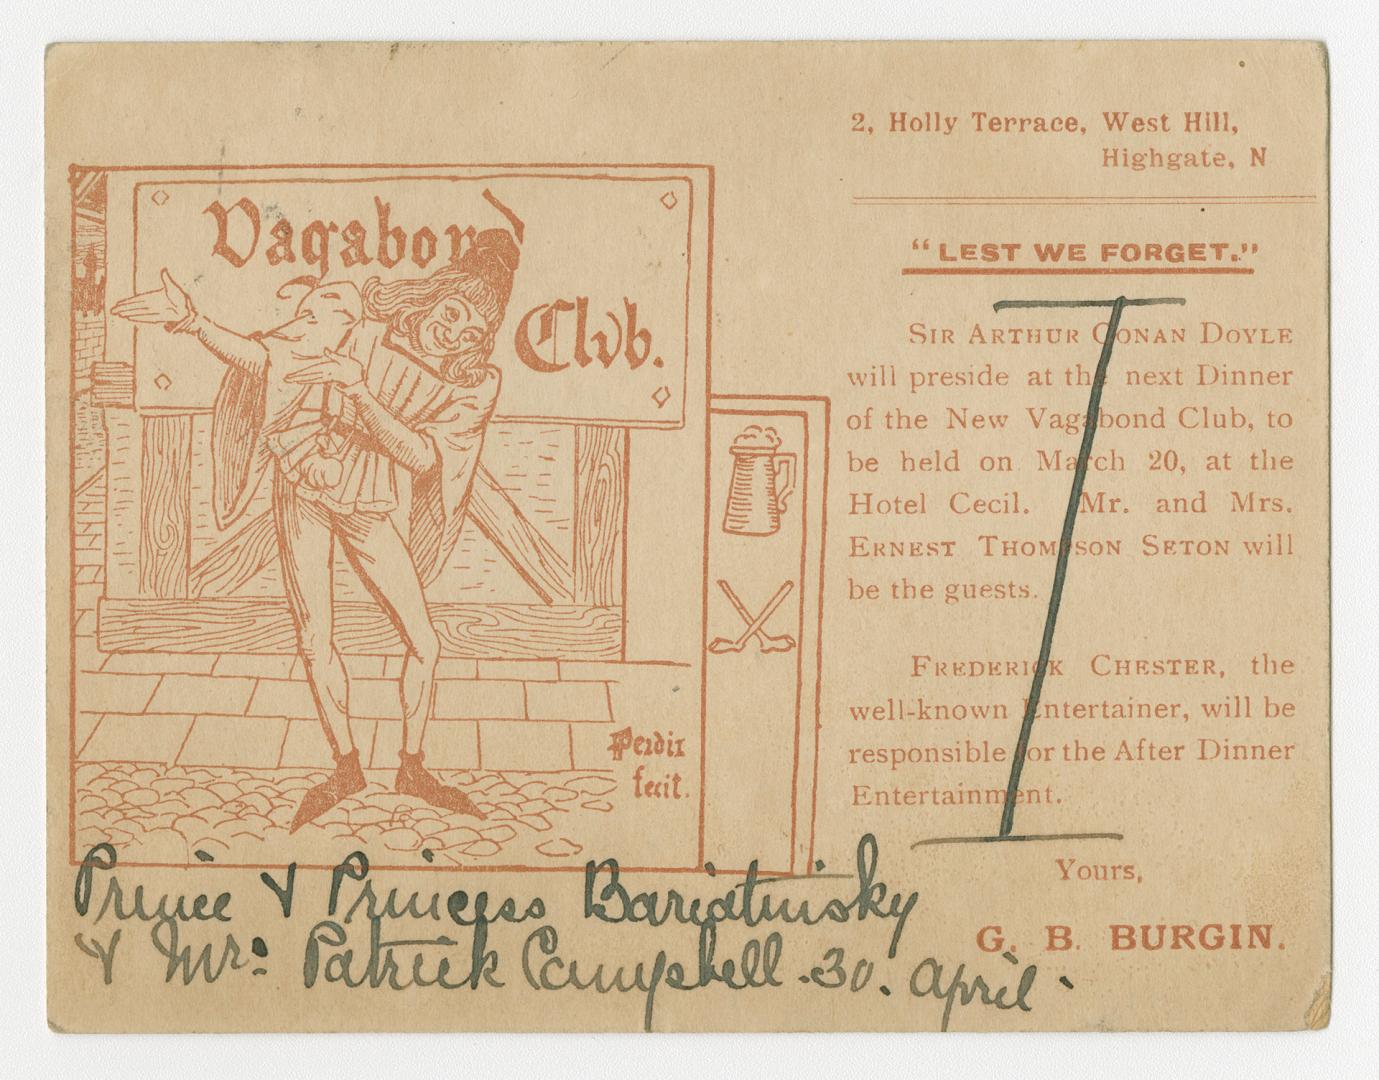 2, Holly Terrace, West Hill,
Highgate, N
"LEST WE FORGET."
Vagabond
Clvb.
SIR ARTHUR CONAN DOYLE
will preside at the next Dinner
of the New Vagabond Club, to
be held on March 20, at the
Hotel Cecil. Mr. and Mrs.
ERNEST THOMPSON SETON will
be the guests.
FREDERICK CHESTER, the
well-known Entertainer, will be
responsible for the After Dinner
Entertainment.
Yours,
G. B. BURGIN.
Perdix
fecit.
Prince & Princess Bariatinsky
& Mrs. Patrick Campbell. 30. April.